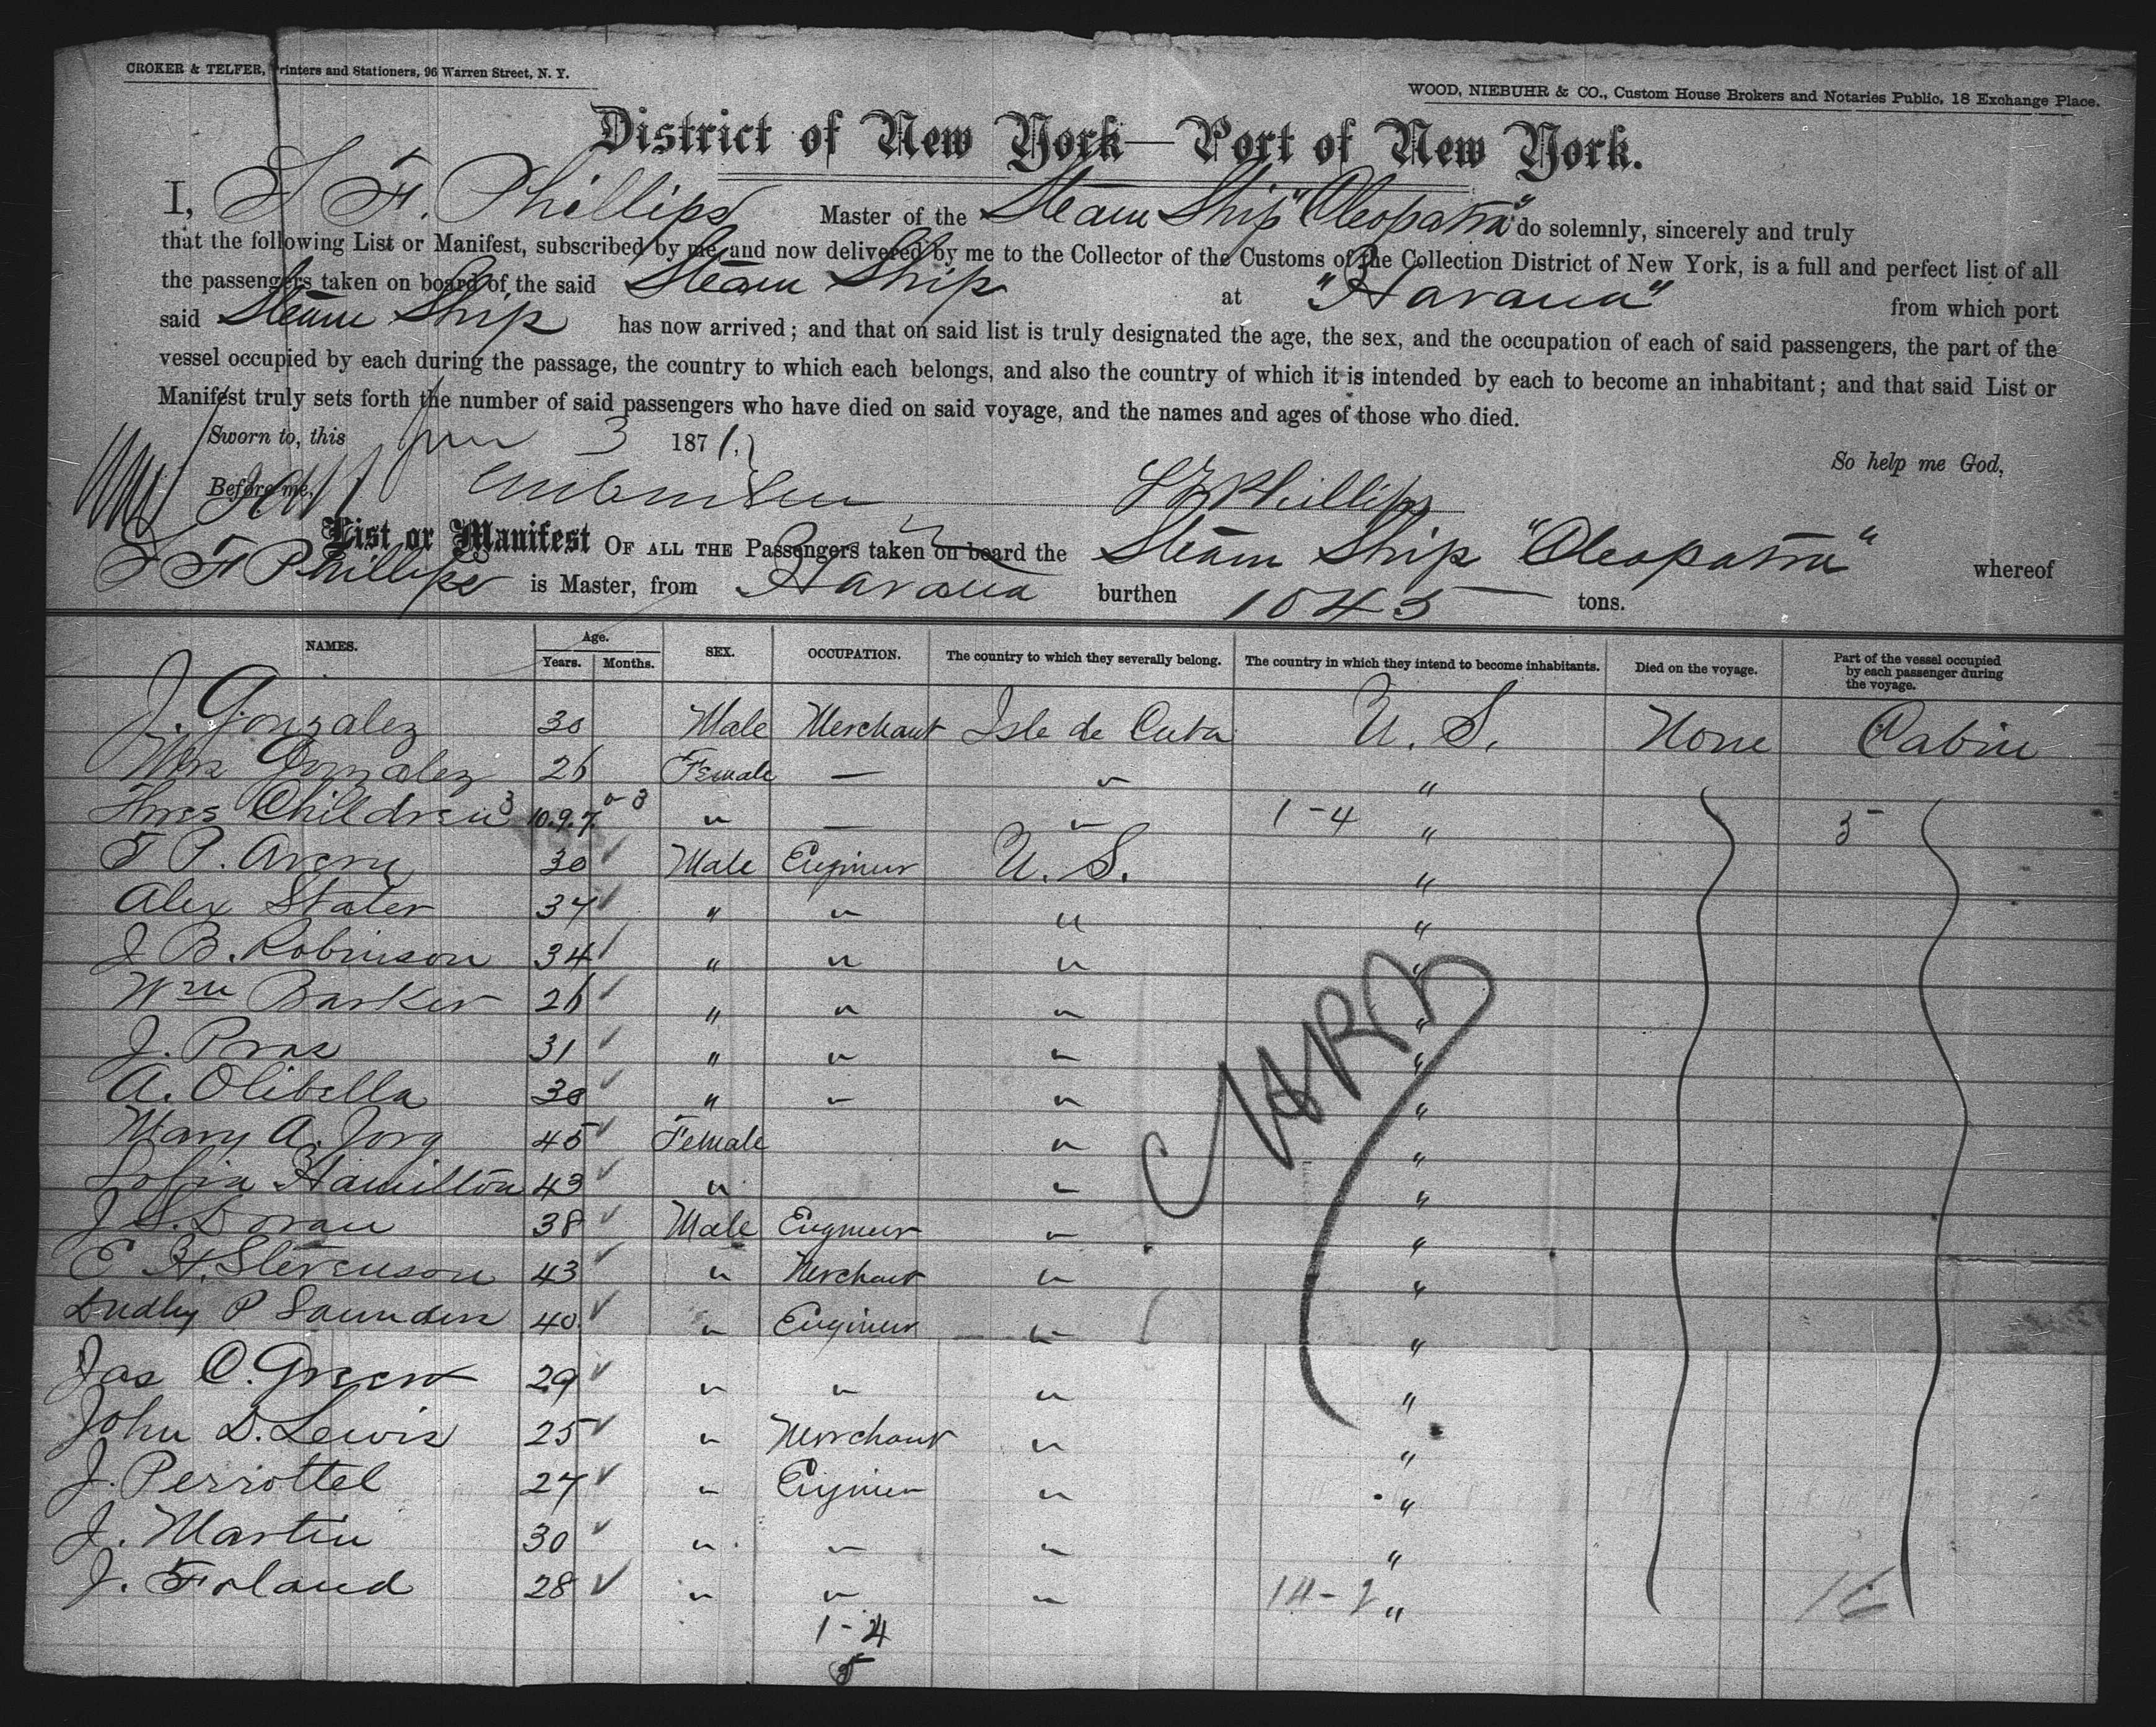 CROKER & TELFER, Printers and Stationers, 96 Warren Street, N. Y.
WOOD, NIEBUHR & CO., Custom House Brokers and Notaries Public, 18 Exchange Place.
District of New York—Port of New York.
I, S F. Phillips Master of the Steam Ship "Cleopatra" do solemnly, sincerely and truly
that the following List or Manifest, subscribed by me, and now delivered by me to the Collector of the Customs of the Collection District of New York, is a full and perfect list of all
the passengers taken on board of the said Steam Ship at "Havana" from which port
said Steam Ship has now arrived; and that on said list is truly designated the age, the sex, and the occupation of each of said passengers, the part of the
vessel occupied by each during the passage, the country to which each belongs, and also the country of which it is intended by each to become an inhabitant; and that said List or
Manifest truly sets forth the number of said passengers who have died on said voyage, and the names and ages of those who died.
Sworn to, this 3 1871.
So help me God,
Before me, S F Phillips
List or Manifest OF ALL THE Passengers taken on board the Steam Ship "Cleopatra" whereof
S F Phillips is Master, from Havana burthen 1045 tons.
NAMES. Age. Years. Months. SEX. OCCUPATION. The country to which they severally belong. The country in which they intend to become inhabitants. Died on the voyage. Part of the vessel occupied by each passenger during the voyage.
J. Gonzalez 30 Male Merchant Isle de Cuba U. S. None Cabin
Mrs Gonzalez 26 Female — " "
Three Children 3 10.9.7. " — " 1-4 "
T P. Avery 30 Male Engineer U. S. "
Alex Stater 37 " " " "
J B. Robinson 34 " " " "
Wm Barker 26 " " " "
J. Pras 31 " " " "
A. Olibella 38 " " " "
Mary A. Jorg 45 Female " "
Sofia Hamilton 43 " " "
J S. Doran 38 Male Engineer " "
E H. Stevenson 43 " Merchant " "
Dudley P Saunders 40 " Engineer " "
Jas C. Green 29 " " " "
John D. Lewis 25 " Merchant " "
J. Perrottel 27 " Engineer " "
J. Martin 30 " " " "
J. Foland 28 " " " 14-2 " 16
1-4
5